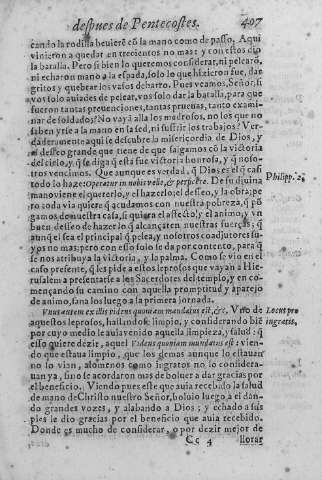 despues de Pentecostes. 407
cando la rodilla beuierẽ cõ la mano como de passo. Aqui
vinieron a quedar en trecientos no mas: y con estos dio
la batalla. Pero si bien lo queremos considerar, ni pelearõ,
ni echaron mano a la espada, solo lo que hizieron fue, dar
gritos, y quebrar los vasos de barro. Pues veamos, Señor, si
vos solo auiades de pelear, vos solo dar la batalla, para que
fueron tantas preuenciones, tantas prueuas, tanto exami-
nar de soldados? No vayã alla los medrosos, no los que no
saben yrse a la mano en la sed, ni sufrir los trabajos? Ver-
daderamente aqui se descubre la misericordia de Dios, y
el desseo grande que tiene de que salgamos cõ la victoria
del cielo, y q̃ se diga q̃ esta fue victoria honrosa, y q̃ noso-
tros vencimos. Que aunque es verdad, q̃ Dios es el q̃ casi
todo lo haze: Operatur in nobis velle, & perficere. De su diuina
Philipp. 2.
mano viene el quererlo, y el hazerlo, el desseo, y la obra; pe
ro toda via quiere q̃ acudamos con nuestra pobreza, q̃ põ
gamos de nuestra casa, si quiera el afecto, y el animo, y vn
buen desseo de hazer lo q̃ alcançaren nuestras fuerças; q̃
aunque el sea el principal q̃ pelea, y nosotros coadjutores su
yos no mas; pero con esso solo se da por contento, para q̃
se nos atribuya la victoria, y la palma. Como se vio en el
caso presente, q̃ les pide a estos leprosos que vayan a Hie-
rusalem a presentarse a los Sacerdotes del templo, y en co-
mençando su camino con aquella promptitud y aparejo
de animo, sana los luego a la primera jornada.
Vnus autem ex illis videns quoniam mundatus est, &c. Vno de
Locus pro
aquestos leprosos, hallandose limpio, y considerando biẽ
ingratis.
por cuyo medio le auia venido aquella limpieza, y salud: q̃
esso quiere dezir, aquel Videns quoniam mundatus est: vien-
do que estaua limpio, que los demas aunque lo estauan
no lo vian, alomenos como ingratos no lo considera-
uan ya, sino se acordaron mas de boluer a dar gracias por
el beneficio. Viendo pues este que auia recebido la salud
de mano de Christo nuestro Señor, boluio luego a el dan-
do grandes vozes, y alabando a Dios; y echado a sus
pies le dio gracias por el beneficio que auia recebido.
Donde es mucho de considerar, o por dezir mejor de
Cc 4 llorar